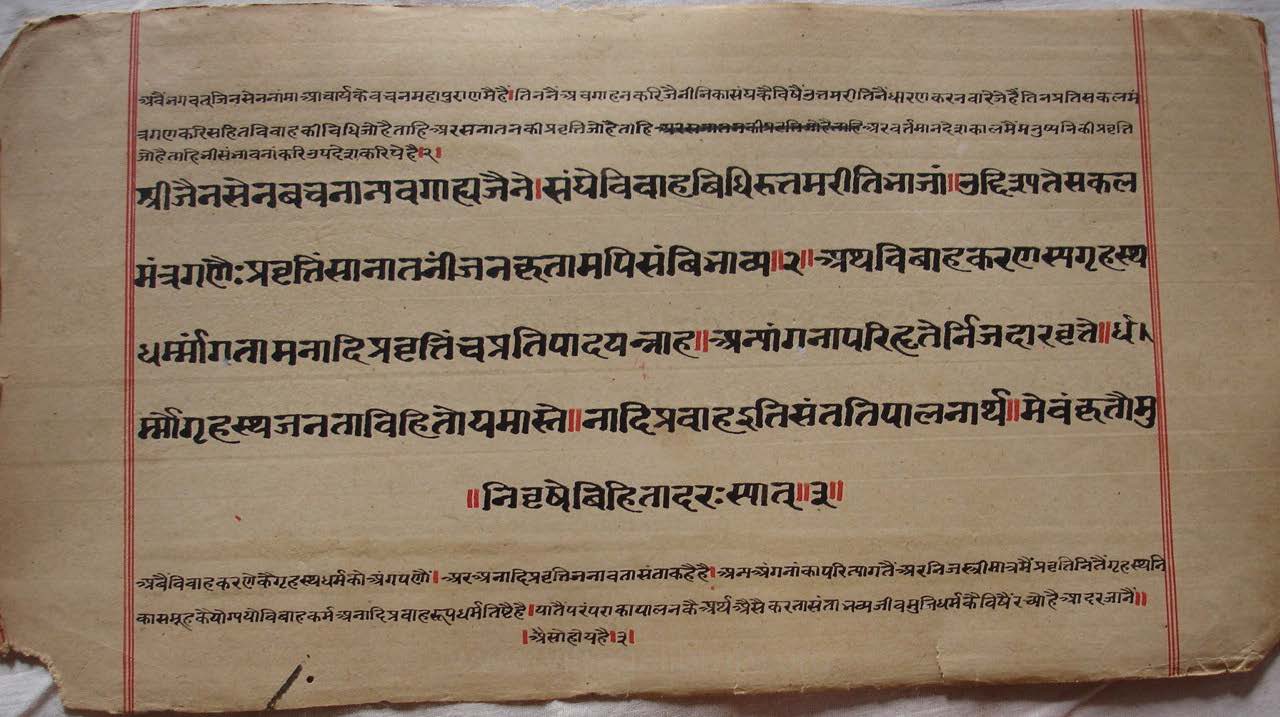 अबैंभगवत्जिनसेननामाआचार्यकेवचनमहापुराणमैहैं।तिननैंअवगाहनकरिजैनीनिकासंघकैविषैंउत्तमरीतिनैंधारणकरनवारेजेहैंतिनप्रतिसकलमं
त्रगणकरिसहितविवाहकीविधिजोहैताहिअरसनातनकीप्रवृत्तिजोहैताहिअरवर्तमानदेशकालमैंमनुष्यनिकीप्रवृत्ति
जोहैताहिनीसंभावनांकरिउपदेशकरियेहै।२।
श्रीजैनसेनबचनान्यवगाह्यजैने।संघेविवाहबिधिरुत्तमरीतिभाजां॥उद्दिश्यतेसकल
मंत्रगणैःप्रवृत्तिंसानातनींजनकृतामपिसंबिभाव्य॥२॥अथविबाहकरणस्यगृहस्थ
धर्म्मांगतामनादिप्रवृत्तिंचप्रतिपादयन्नाह॥अन्यांगनापरिहृतेर्निजदारवृत्ते॥र्ध
र्म्मोगृहस्थजनताविहितोयमास्ते॥नादिप्रवाहइतिसंततिपालनार्थ॥मेवंकृतौमु
॥निवृषेबिहितादरःस्यात्॥३॥
अबैंविवाहकरणेकैगृहस्थधर्मकोअंगपणौं।अरअनादिप्रवृत्तिनैंनावतासंताकहैहै।अन्यअंगनांकापरित्यागतैंअरनिजस्त्रीमात्रमैंप्रवृत्तिनितैंगृहस्थनि
कासमूहकैयोग्ययोविबाहकर्मअनादिप्रवाहरूपधर्मतिष्टैहै।यातैंपरंपराकापालनकैअर्थऐसैंकरतासंताभव्यजीवमुनिधर्मकैविषैंरच्योहैआदरजानैं॥
।ऐसोहोयहै।३।